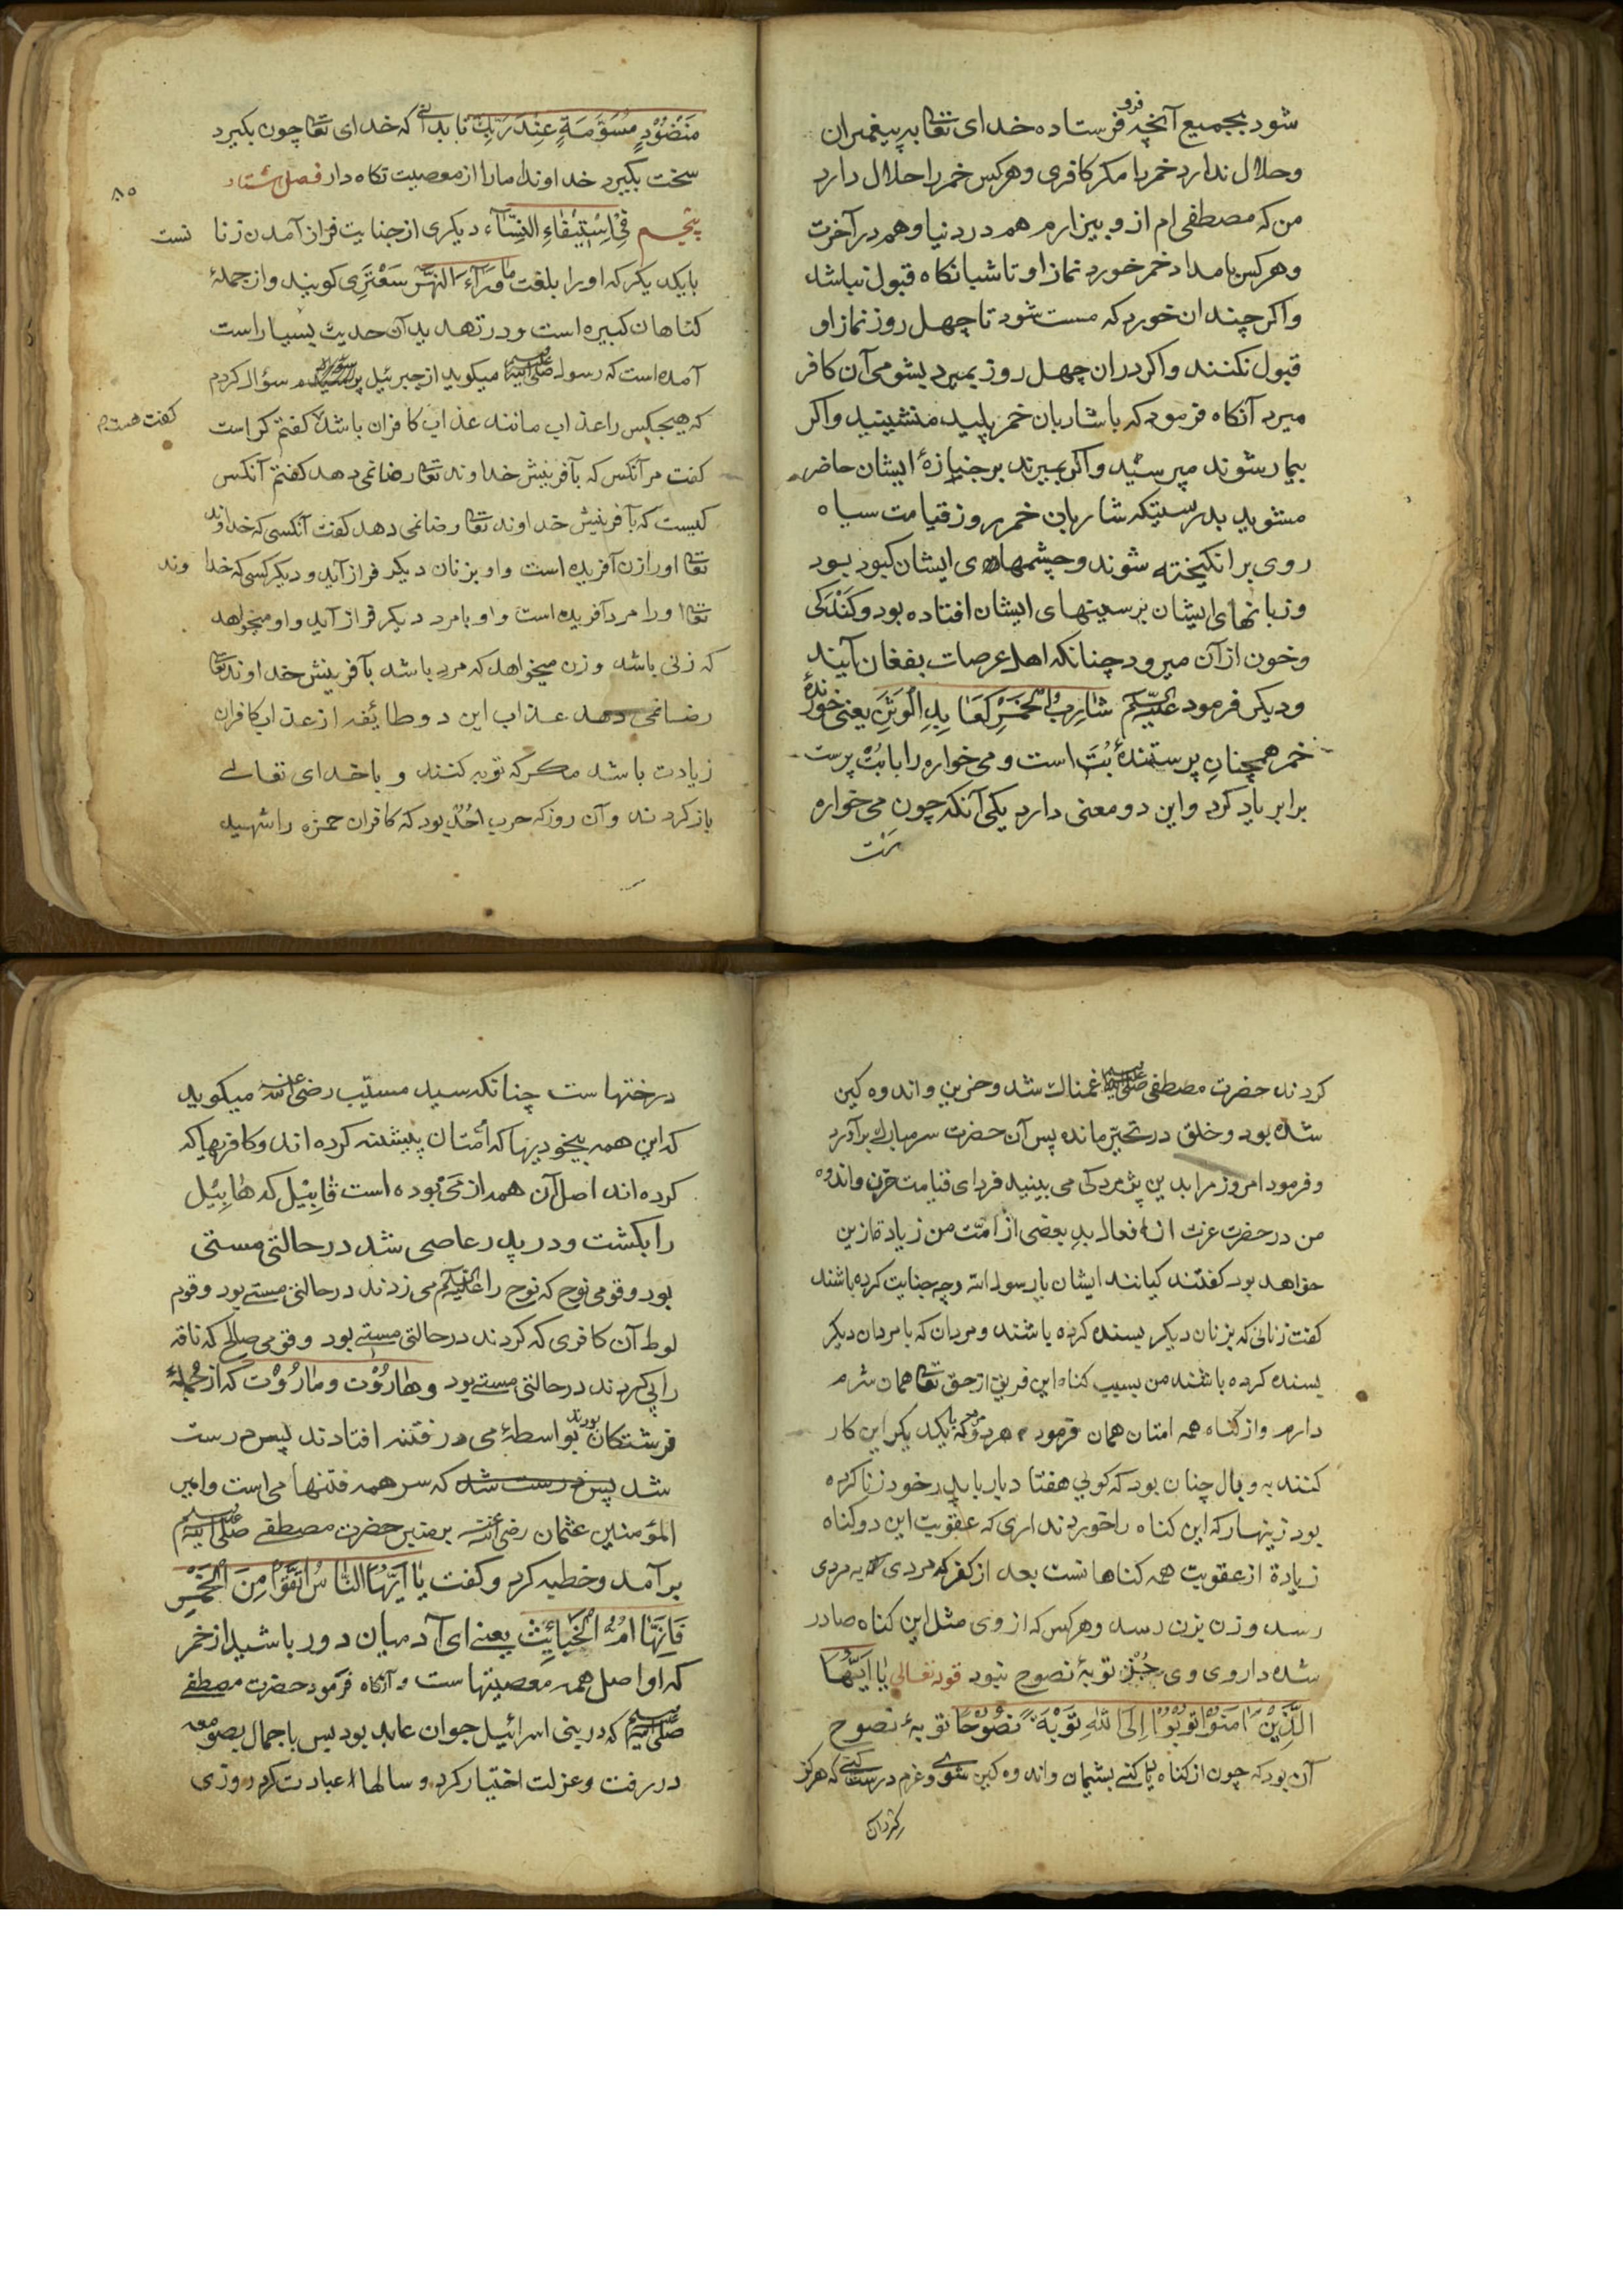 شود بجمیع آنچه فرو فرستاده خدای تعا به پیغمبران
وحلال ندارد خمر را مکر کافری وهرکس خمر را حلال دارد
من که مصطفی ام از و بیزارم هم در دنیا وهم در آخرت
وهرکس بامداد خمر خورد نماز او تا شبانکاه قبول نباشد
واکر چندان خورد که مست شود تا چهل روز نماز او
قبول نکنند واکر دران چهل روز بمیرد بشومی آن کافر
میرد آنکاه فرمود که با شاربان خمر پلید منشینید واکر
بیمار شوند مپرسئید واکر بمیرند برجنازهٔ ایشان حاضر
مشوید بدرستیکه شاربان خمر روز قیامت سیاه
روی بر انکیخته شوند وچشمهای ایشان کبود بود
وزبانهای ایشان برسینهای ایشان افتاده بود وکندکی
وخون از آن میرود چنانکه اهل عرصات بفغان آیند
ودیکر فرمود علیه السلم شَارِبُ الْخَمْرِ كَعَابِدِ الْوَثَنِ یعنی خورندهٔ
خمر همچنان پرستندهٔ بُت است ومی خواره را با بُت پرست
برابر یاد کرد واین دو معنی دارد یکی آنکه چون می خواره
مَنْضُوْدٍ مُسَوَّمَةٍ عِنْدَ رَبِّكَ تا بدانی که خدای تعا چون بکیرد
سخت بکیرد خداوندا ما را از معصیت نکاه دار فصل هشتاد
۸۵
پنجم فِیْ اِسْتِیْفَاءِ النِّسَآءِ دیکری از جنایت فراز آمدن زنا نست
بایکدیکر که او را بلغت مَا وَرَآءَ النَّهْرِ سَعْتَرِی کویند واز جملهٔ
کناهان کبیره است ودر تهدید آن حدیث بسیار است
آمده است که رسول صلی الله علیه وسلم میکوید از جبرئیل سؤال کردم
که هیچکس را عذاب مانند عذاب کافران باشد کفت هست کفتم کراست
کفت مر آنکس که بآفرینش خداوند تعا رضا نمی دهد کفتم آنکس
کیست که بآفرینش خداوند تعا رضا نمی دهد کفت آنکسی که خداوند
تعا او را زن آفریده است واو بزنان دیکر فراز آید ودیکر کسی که خدا وند
تعا او را مرد آفریده است واو بامرد دیکر فراز آید واو میخواهد
که زنی باشد وزن میخواهد که مرد باشد بآفرینش خداوند تعا
رضا نمی دهد عذاب این دو طائفه از عذاب کافران
زیادت باشد مکر که توبه کنند وبا خدای تعالی
باز کردند وآن روز که حرب اُحُد بود که کافران حمزه را شهید
کردند حضرت مصطفی صلی الله علیه وسلم غمناک شد وحزین واندوه کین
شده بود وخلق در تحیّر مانده پس آن حضرت سر مبارک برآورد
وفرمود امروز مرا بدین پژمردکی می بینید فردای قیامت حزن واندوه
من در حضرت عزت از افعال بدِ بعضی از امّت من زیادة ازین
خواهد بود کفتند کیانند ایشان یا رسول الله وچه جنایت کرده باشند
کفت زنانی که بزنان دیکر بسنده کرده باشند ومردان که بامردان دیکر
بسنده کرده باشند من بسبب کناه این فریق از حق تعا همان شرم
دارم واز کناه همه امتان همان فرمود هر دو مرد که بایکدیکر این کار
کنند به وبال چنان بود که کویی هفتاد بار با پدر خود زنا کرده
بود زینهار که این کناه را خورد ندارى که عقوبت این دو کناه
زیادة از عقوبت همه کناها نست بعد از کفر که مردی به مردی
رسد وزن بزن رسد وهرکس که از وی مثل این کناه صادر
شده داروی وی جُز توبهٔ نصوح نبود قوله تعالی یَا اَیُّهَا
الَّذِیْنَ اٰمَنُوْا تُوْبُوْا اِلَی اللّٰهِ تَوْبَةً نَصُوْحًا توبهٔ نصوح
آن بود که چون از کناه پاک کنی پشیمان واندوه کین شوی وعزم درست کنی که هرکز
درختهاست چنانکه سید مستیب رضی الله عنه میکوید
که این همه بیخودیها که اُمّتان پیشینه کرده اند وکافریها که
کرده اند اصل آن همه از مَیْ بوده است قَابِیْل که هَابِیْل
را بکشت ودر پدر عاصی شد در حالتی مستی
بود وقومی نوح که نوح را علیه السلم می زدند در حالتی مستی بود وقوم
لوط آن کافری که کردند در حالتی مستی بود وقومی صالح که ناقه
را پی کردند در حالتی مستی بود وهَارُوْت ومَارُوْت که از جملهٔ
فرشتکان بودند بواسطهٔ می در فتنه افتادند پس درست
شد پس درست شد که سر همه فتنها می است وامیر
المؤمنین عثمان رضی الله عنه برمنبر حضرت مصطفی صلی الله علیه وسلم
برآمد وخطبه کرد وکفت یَا اَیُّهَا النَّاسُ اتَّقَوْا مِنَ الْخَمْرِ
فَاِنَّهَا اُمُّ الْخَبَائِثِ یعنی ای آدمیان دور باشید از خمر
که او اصل همه معصیتهاست وآنکاه فرمود حضرت مصطفی
صلی الله علیه وسلم که در بنی اسرائیل جوان عابد بود بس با جمال بصومعه
در رفت وعزلت اختیار کرد وسالها عبادت کرد روزی